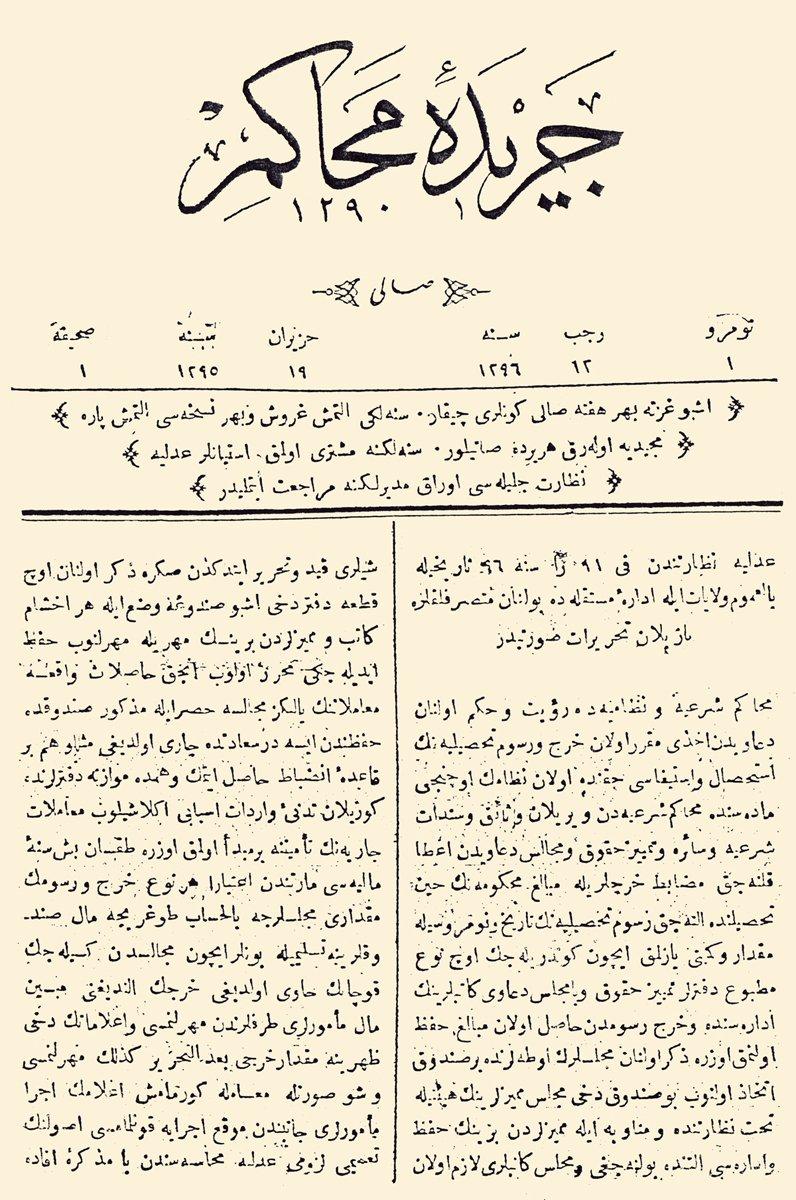 جریدهٔ محاكم
١٢٩٠ ١
صالی
نومرو رجب سنه حزیران سنه صحیفه
١ ١٢ ١٢٩٦ ١٩ ١٢٩٥ ١
اشبو غزته بهر هفته صالی كونلری چیقار · سنه‌لكی التمش غروش وبهر نسخه‌سی التمش پاره
مجیدیه اوله‌رق هریرده صاتیلور · سنه‌لكنه مشتری اولمق استیانلر عدلیه
نظارت جلیله‌سی اوراق مدیرلكنه مراجعت ایتملیدر
عدلیه نظارتندن فی سنه ٩٦ تاریخیله
بالعموم ولایات ایله ادارهٔ مستقله‌ده بولنان متصرفلقلره
یازیلان تحریرات صورتیدر
محاكم شرعیه و نظامیه‌ده رؤیت و حكم اولنان
دعاویدن اخذی مقرر اولان خرج و رسوم تحصیلیه‌نك
استحصال واستیفاسی حقنده اولان نظامك اوچنجی
ماده‌سنده محاكم شرعیه‌دن ویریلان وثائق وسندات
شرعیه وسائره وتمییز حقوق ومجالس دعاویدن اعطا
قلنه‌جق مضابط خرجلریله مبالغ محكومه‌نك حین
تحصیلنده النه‌جق رسوم تحصیلیه‌نك تاریخ ونومروسیله
مقدار وكمیتی یازلمق ایچون كوندریله‌جك اوچ نوع
مطبوع دفترلر تمییز حقوق ومجلس دعاوی كاتبلرینك
اداره‌سنده وخرج رسومدن حاصل اولان مبالغی حفظ
اولنمق اوزره ذكر اولنان مجلسلرك اوطه‌لرنده برصندوق
اتخاذ اولنوب بوصندوق دخی مجلس ممیزلرینك هیئتیله
تحت نظارتنده ومناوبه ایله ممیزلردن برینك حفظ
واداره‌سی التنده بولنه‌جغی ومجلس كاتبلری لازم اولان
شیلری قید وتحریر ایتدكدن صكره ذكر اولنان اوچ
قطعه دفتر دخی اشبو صندوغه وضع ایله هر اخشام
كاتب و ممیزلردن برینك مهریله مهرلنوب حفظ
ایدیله‌جكی محرر اولوب انجق حاصلات واقعه‌نك
معاملاتنك یالكز مجالسه حصرایله مذكور صندوقده
حفظندن ایسه درسعادتده جاری اولدیغی مثللو هم بر
قاعدهٔ انضباط حاصل ایتمك وهمده موازنه دفترلرنده
كوزیلان تدنئ واردات اسبابی اكلاشیلوب معاملات
جاریه‌نك تأمیننه برمبدأ اولمق اوزره طقسان بش سنهٔ
مالیه‌سی مارتندن اعتبارا هر نوع خرج و رسومك
مقداری مجلسلرجه بالحساب طوغریجه مال صند-
وقلرینه تسلیمیله بونلر ایچون مجالسدن كسیله‌جك
قوچانك حاوی اولدیغی خرجك الندیغنی مبین
مال مأمورلری طرفلرندن مهرلنمسی واعلاماتك دخی
ظهرینه مقدار خرجی بعد التحریر كذلك مهرلنمسی
و شو صورتله معامله كورمامش اعلامك اجرا
مأمورلری جانبندن موقع اجرایه قونلمامسی اصولنك
تعمیمی لزومی عدلیه محاسبه‌سندن با مذكره افاده